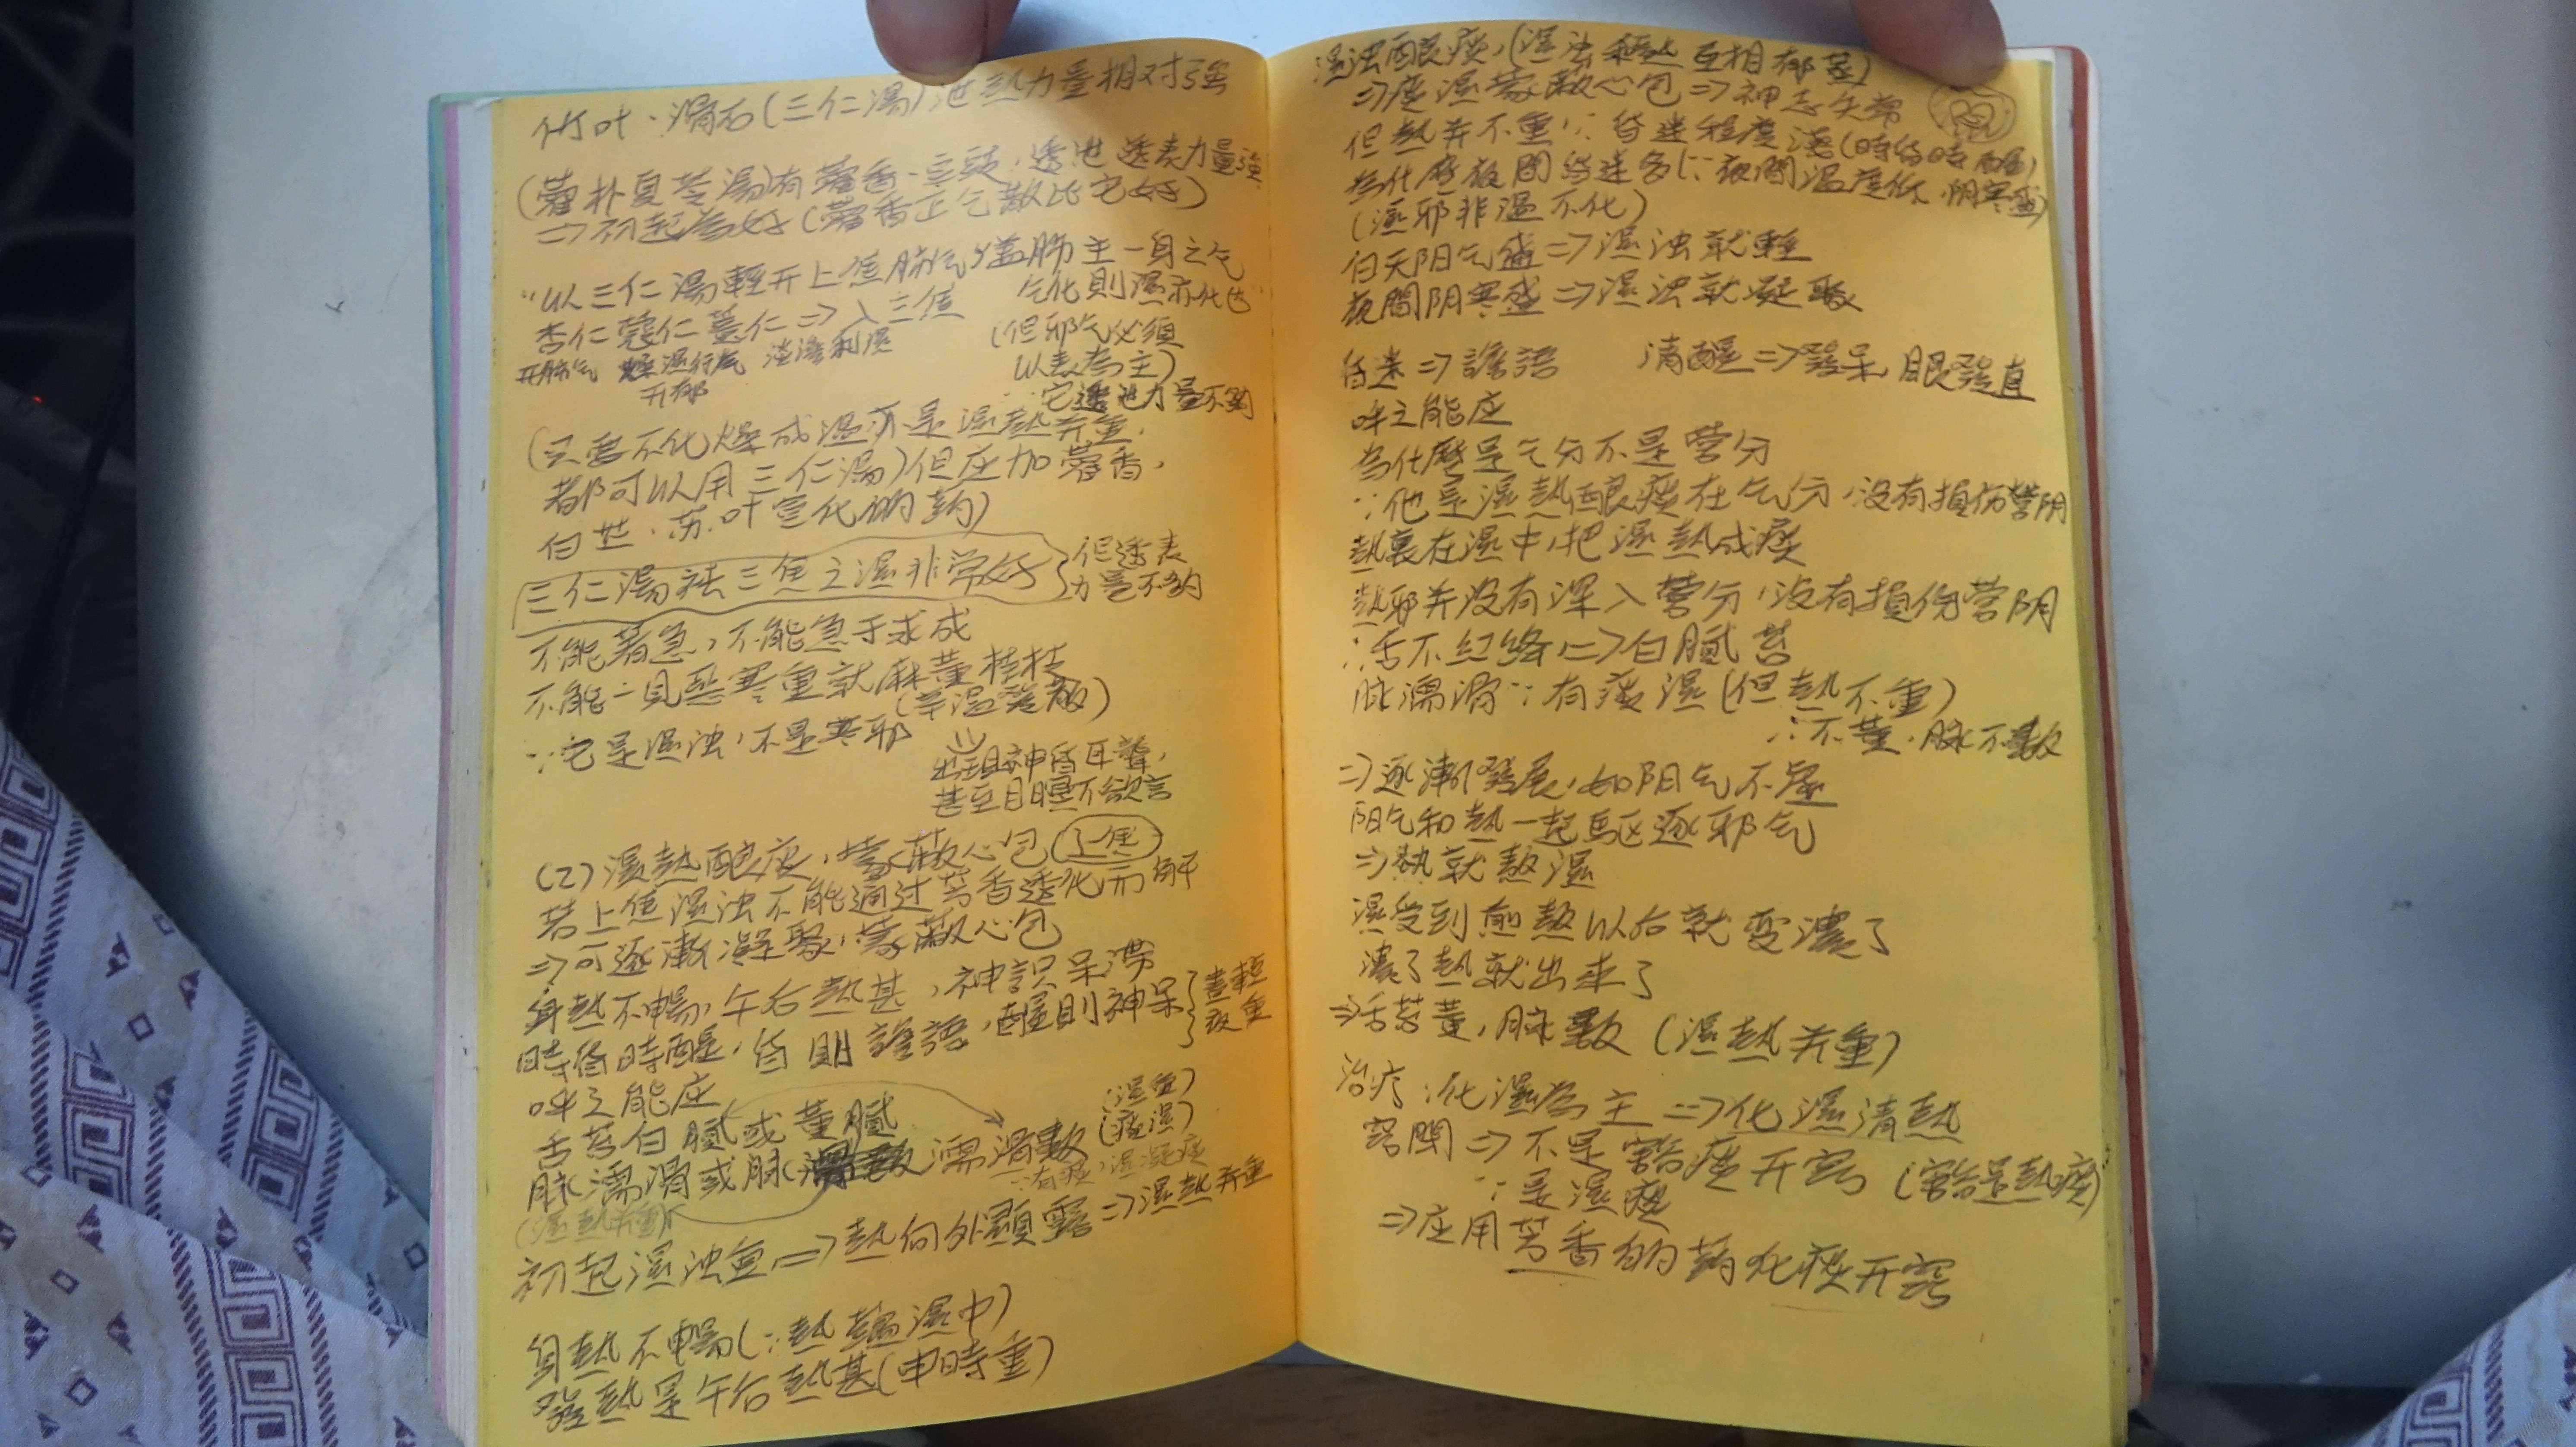 竹叶．滑石(三仁湯)泄熱力量相对強
(藿朴夏苓湯)有藿香．豆豉，透泄透表力量強
⇒初起為好(藿香正气散比它好)
"以三仁湯輕开上焦肺气，盖肺主一身之气
气化則濕亦化也
杏仁蔻仁薏仁⇒入三焦
开肺气 燥濕行气 淡滲利濕
开郁
(但邪气必須
以表為主)
∵它透泄力量不夠
(只要不化燥成温亦是濕熱并重，
都可以用三仁湯)但应加藿香，
白芷．苏．叶宣化的葯)
三仁湯祛三焦之濕非常好
但透表
力量不夠
不能着急，不能急于求成
不能一見惡寒重就麻黄桂枝
(辛温發散)
∵它是濕浊，不是寒邪
出現神昏耳聾，
甚至目瞑不欲言
(2)濕熱酿痰，蒙蔽心包(上焦)
若上焦濕浊不能通过芳香透化而解
⇒可逐漸凝聚，蒙蔽心包
身熱不暢，午后熱甚，神識呆滯
時昏時醒，昏則譫語，醒則神呆
昼輕
夜重
呼之能应
舌苔白膩或黄膩
脉濡滑或脉濡滑數
(濕重)
(痰濕)
∵有痰，濕凝痰
(濕熱并重)
初起濕浊重⇒熱向外顯露⇒濕熱并重
身熱不暢(∵熱蘊濕中)
發熱是午后熱甚(申時重)
濕浊酿痰，(濕浊和熱互相郁蒸)
⇒痰濕蒙蔽心包⇒神志失常
但熱并不重，∵昏迷程度淺(時昏時醒)
為什麼夜間昏迷多(∵夜間温度低，阴寒盛)
(濕邪非温不化)
白天阳气盛⇒濕浊就輕
夜間阴寒盛⇒濕浊就凝聚
昏迷⇒譫語 清醒⇒發呆，眼發直
呼之能应
為什麼是气分不是营分
∵他是濕熱酿痰在气分，没有損伤营阴
熱裹在濕中，把濕熱成痰
熱邪并没有深入营分，没有損伤营阴
∴舌不红絳，⇒白膩苔
脉濡滑∵有痰濕(但熱不重)
∴不黄．脉不數
⇒逐漸發展，如阳气不虚
阳气和熱一起驅逐邪气
⇒熱就熬濕
濕受到煎熬以后就变濃了
濃了熱就出来了
⇒舌苔黄，脉數(濕熱并重)
治疗：化濕為主⇒化濕清熱
窍閉⇒不是豁痰开窍(豁是熱痰)
∵是濕痰
⇒应用芳香的葯化痰开窍